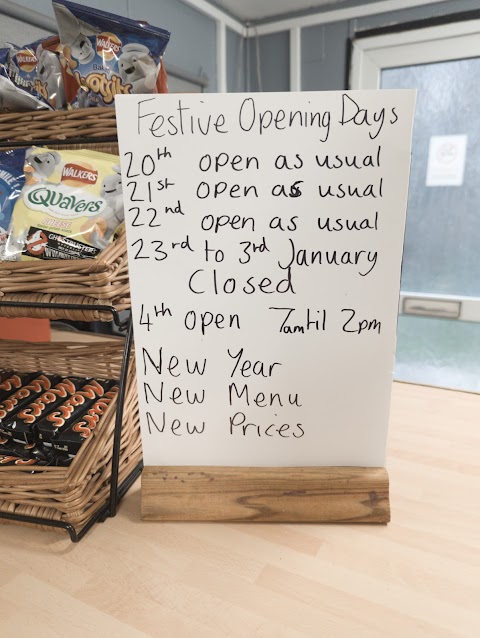 Festive Opening Days
20th open as usual
21st open as usual
22nd open as usual
23rd to 3rd January
Closed
4th open 7am til 2pm
New Year
New Menu
New Prices
WALKERS
WALKERS
WALKERS
Quavers
CHEESE
GHOSTBUSTERS